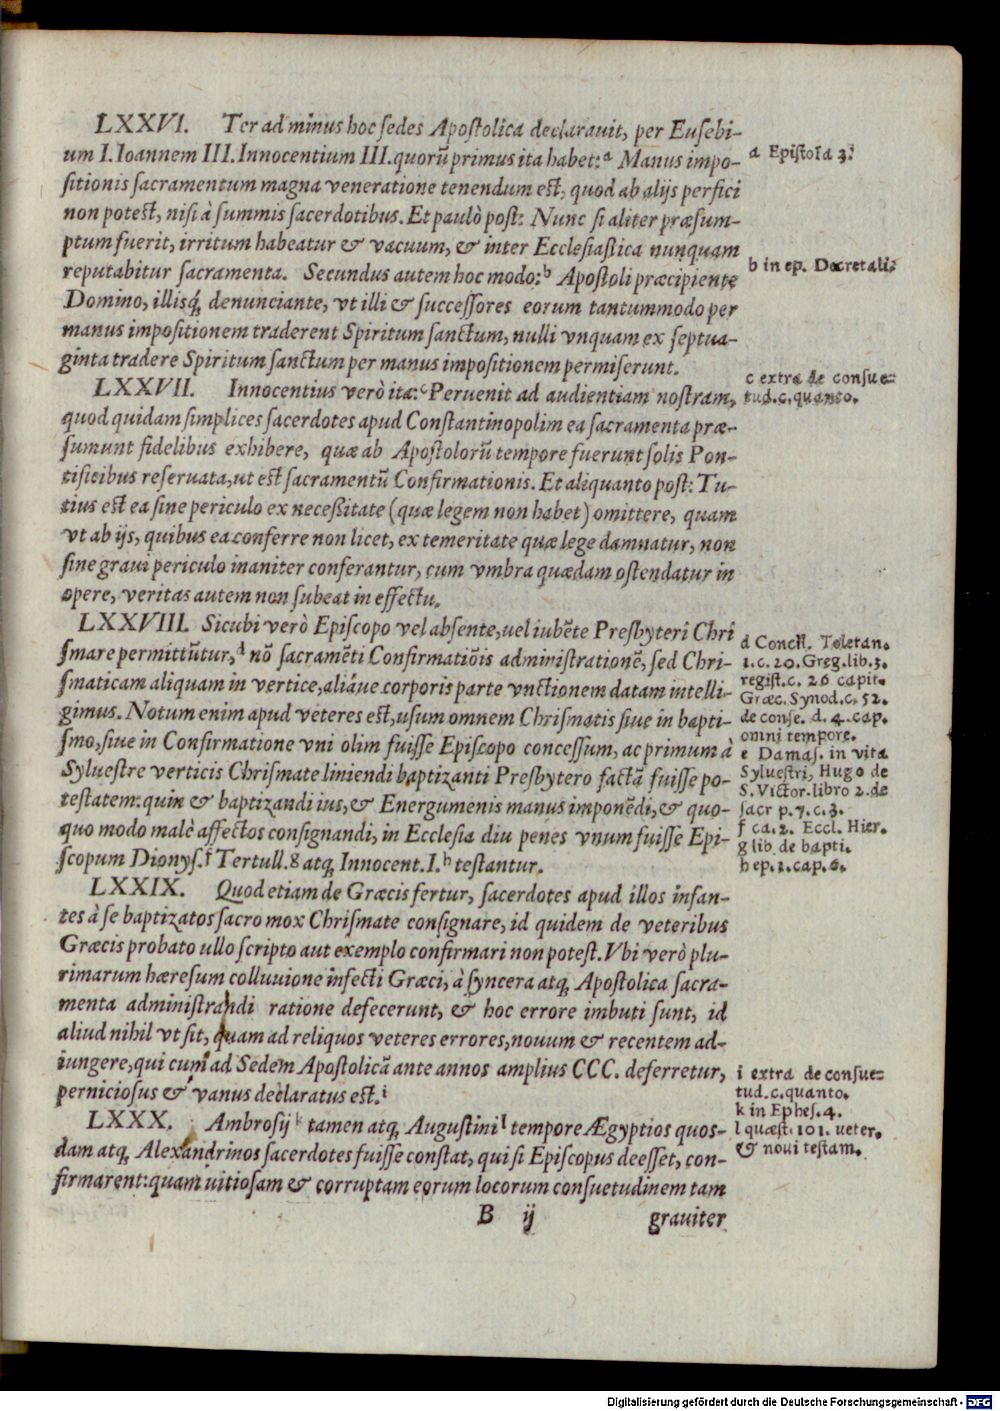 LXXVI. Ter ad minus hoc sedes Apostolica declarauit, per Eusebi-
um I. Ioannem III. Innocentium III. quorū primus ita habet:ᵃ Manus impo-
sitionis sacramentum magna veneratione tenendum est, quod ab alijs perfici
non potest, nisi à summis sacerdotibus. Et paulò post: Nunc si aliter præsum-
ptum fuerit, irritum habeatur & vacuum, & inter Ecclesiastica nunquam
reputabitur sacramenta. Secundus autem hoc modo:ᵇ Apostoli præcipiente
Domino, illisq́; denunciante, vt illi & successores eorum tantummodo per
manus impositionem traderent Spiritum sanctum, nulli vnquam ex septua-
ginta tradere Spiritum sanctum per manus impositionem permiserunt.
LXXVII. Innocentius verò ita:ᶜ Peruenit ad audientiam nostram,
quod quidam simplices sacerdotes apud Constantinopolim ea sacramenta præ-
sumunt fidelibus exhibere, quæ ab Apostolorū tempore fuerunt solis Pon-
tificibus reseruata, ut est sacramentū Confirmationis. Et aliquanto post: Tu-
tius est ea sine periculo ex necessitate (quæ legem non habet) omittere, quam
vt ab ijs, quibus ea conferre non licet, ex temeritate quæ lege damnatur, non
sine graui periculo inaniter conferantur, cum vmbra quædam ostendatur in
opere, veritas autem non subeat in effectu.
LXXVIII. Sicubi verò Episcopo vel absente, uel iubēte Presbyteri Chri
smare permittūtur,ᵈ nō sacramēti Confirmatiōis administrationē, sed Chri-
smaticam aliquam in vertice, aliáue corporis parte vnctionem datam intelli-
gimus. Notum enim apud veteres est, usum omnem Chrismatis siue in bapti-
smo, siue in Confirmatione vni olim fuisse Episcopo concessum, ac primum à
Syluestre verticis Chrismate liniendi baptizanti Presbytero factā fuisse po-
testatem: quin & baptizandi ius, & Energumenis manus imponēdi, & quo-
quo modo malè affectos consignandi, in Ecclesia diu penes vnum fuisse Epi-
scopum Dionys.ᶠ Tertull.ᵍ atq; Innocent. I.ʰ testantur.
LXXIX. Quod etiam de Græcis fertur, sacerdotes apud illos infan-
tes à se baptizatos sacro mox Chrismate consignare, id quidem de veteribus
Græcis probato ullo scripto aut exemplo confirmari non potest. Vbi verò plu-
rimarum hæresum colluuione infecti Græci, à syncera atq; Apostolica sacra-
menta administrandi ratione defecerunt, & hoc errore imbuti sunt, id
aliud nihil vt sit, quam ad reliquos veteres errores, nouum & recentem ad-
iungere, qui cum ad Sedem Apostolicā ante annos amplius CCC. deferretur,
perniciosus & vanus declaratus est.ⁱ
LXXX. Ambrosijᵏ tamen atq; Augustiniˡ tempore Ægyptios quos-
dam atq; Alexandrinos sacerdotes fuisse constat, qui si Episcopus deesset, con-
firmarent: quam uitiosam & corruptam eorum locorum consuetudinem tam
B ij grauiter
a Epistola 3.
b in ep. Decretali.
c extra de consue-
tud. c. quanto.
d Concil. Toletan.
1. c. 20. Greg. lib. 3.
regist. c. 26 capit.
Græc. Synod. c. 52.
de conse. d. 4. cap.
omni tempore.
e Damas. in vita
Syluestri, Hugo de
S. Victor. libro 2. de
sacr p. 7. c. 3.
f ca. 2. Eccl. Hier.
g lib. de bapti.
h ep. 1. cap. 6.
i extra de consue-
tud. c. quanto.
k in Ephes. 4.
l quæst. 101. veter.
& noui testam.
Digitalisierung gefördert durch die Deutsche Forschungsgemeinschaft - DFG